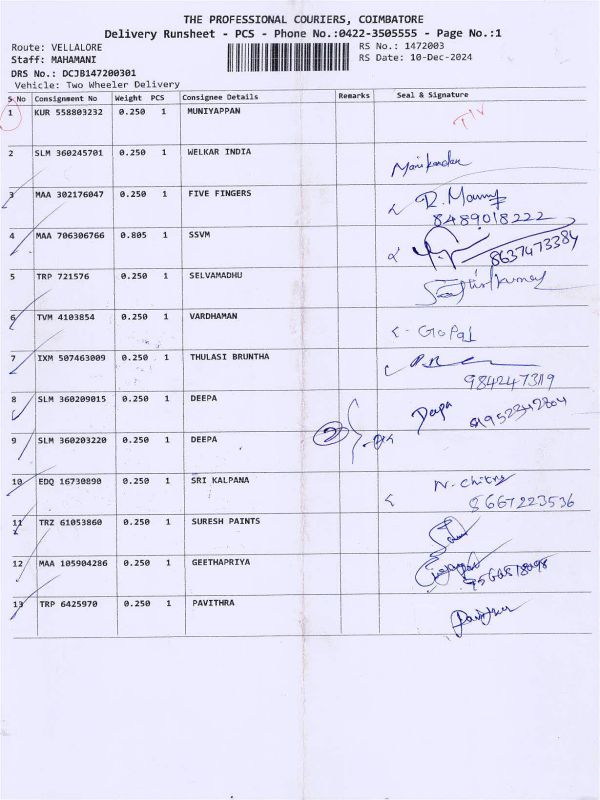 THE PROFESSIONAL COURIERS, COIMBATORE
Delivery Runsheet - PCS - Phone No.:0422-3505555 - Page No.:1
Route: VELLALORE RS No.: 1472003
Staff: MAHAMANI RS Date: 10-Dec-2024
DRS No.: DCJB147200301
Vehicle: Two Wheeler Delivery
S No Consignment No Weight PCS Consignee Details Remarks Seal & Signature
1 KUR 558803232 0.250 1 MUNIYAPPAN
2 SLM 360245701 0.250 1 WELKAR INDIA Manikandan
3 MAA 302176047 0.250 1 FIVE FINGERS
8489018222
4 MAA 706306766 0.805 1 SSVM 8637473384
5 TRP 721576 0.250 1 SELVAMADHU
6 TVM 4103854 0.250 1 VARDHAMAN Gopal
7 IXM 507463009 0.250 1 THULASI BRUNTHA
8 SLM 360209015 0.250 1 DEEPA Deepa
9 SLM 360203220 0.250 1 DEEPA 2
10 EDQ 16730890 0.250 1 SRI KALPANA N. Chitra
8667223536
11 TRZ 61053860 0.250 1 SURESH PAINTS
12 MAA 105904286 0.250 1 GEETHAPRIYA
13 TRP 6425970 0.250 1 PAVITHRA